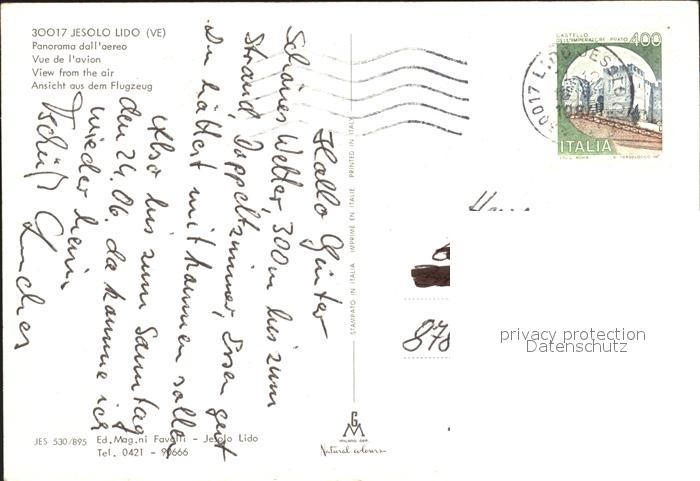 30017 JESOLO LIDO (VE)
Panorama dall'aereo
Vue de l'avion
View from the air
Ansicht aus dem Flugzeug
Hallo Günter
Schönes Wetter, 300m bis zum
Strand, Doppelzimmer, Essen gut
Du hättest mitkommen sollen
Also bis zum Samstag
den 24.06. da komme ich
wieder heim
Tschüß
STAMPATO IN ITALIA IMPRIME EN ITALIE PRINTED IN ITALY
CASTELLO
DELL'IMPERATORE-PRATO 400
ITALIA
30017 LIDO JES
878
privacy protection
Datenschutz
JES 530/895 Ed. Mag.ni Favotti - Jesolo Lido
Tel. 0421 - 90666
GM
Natural colours